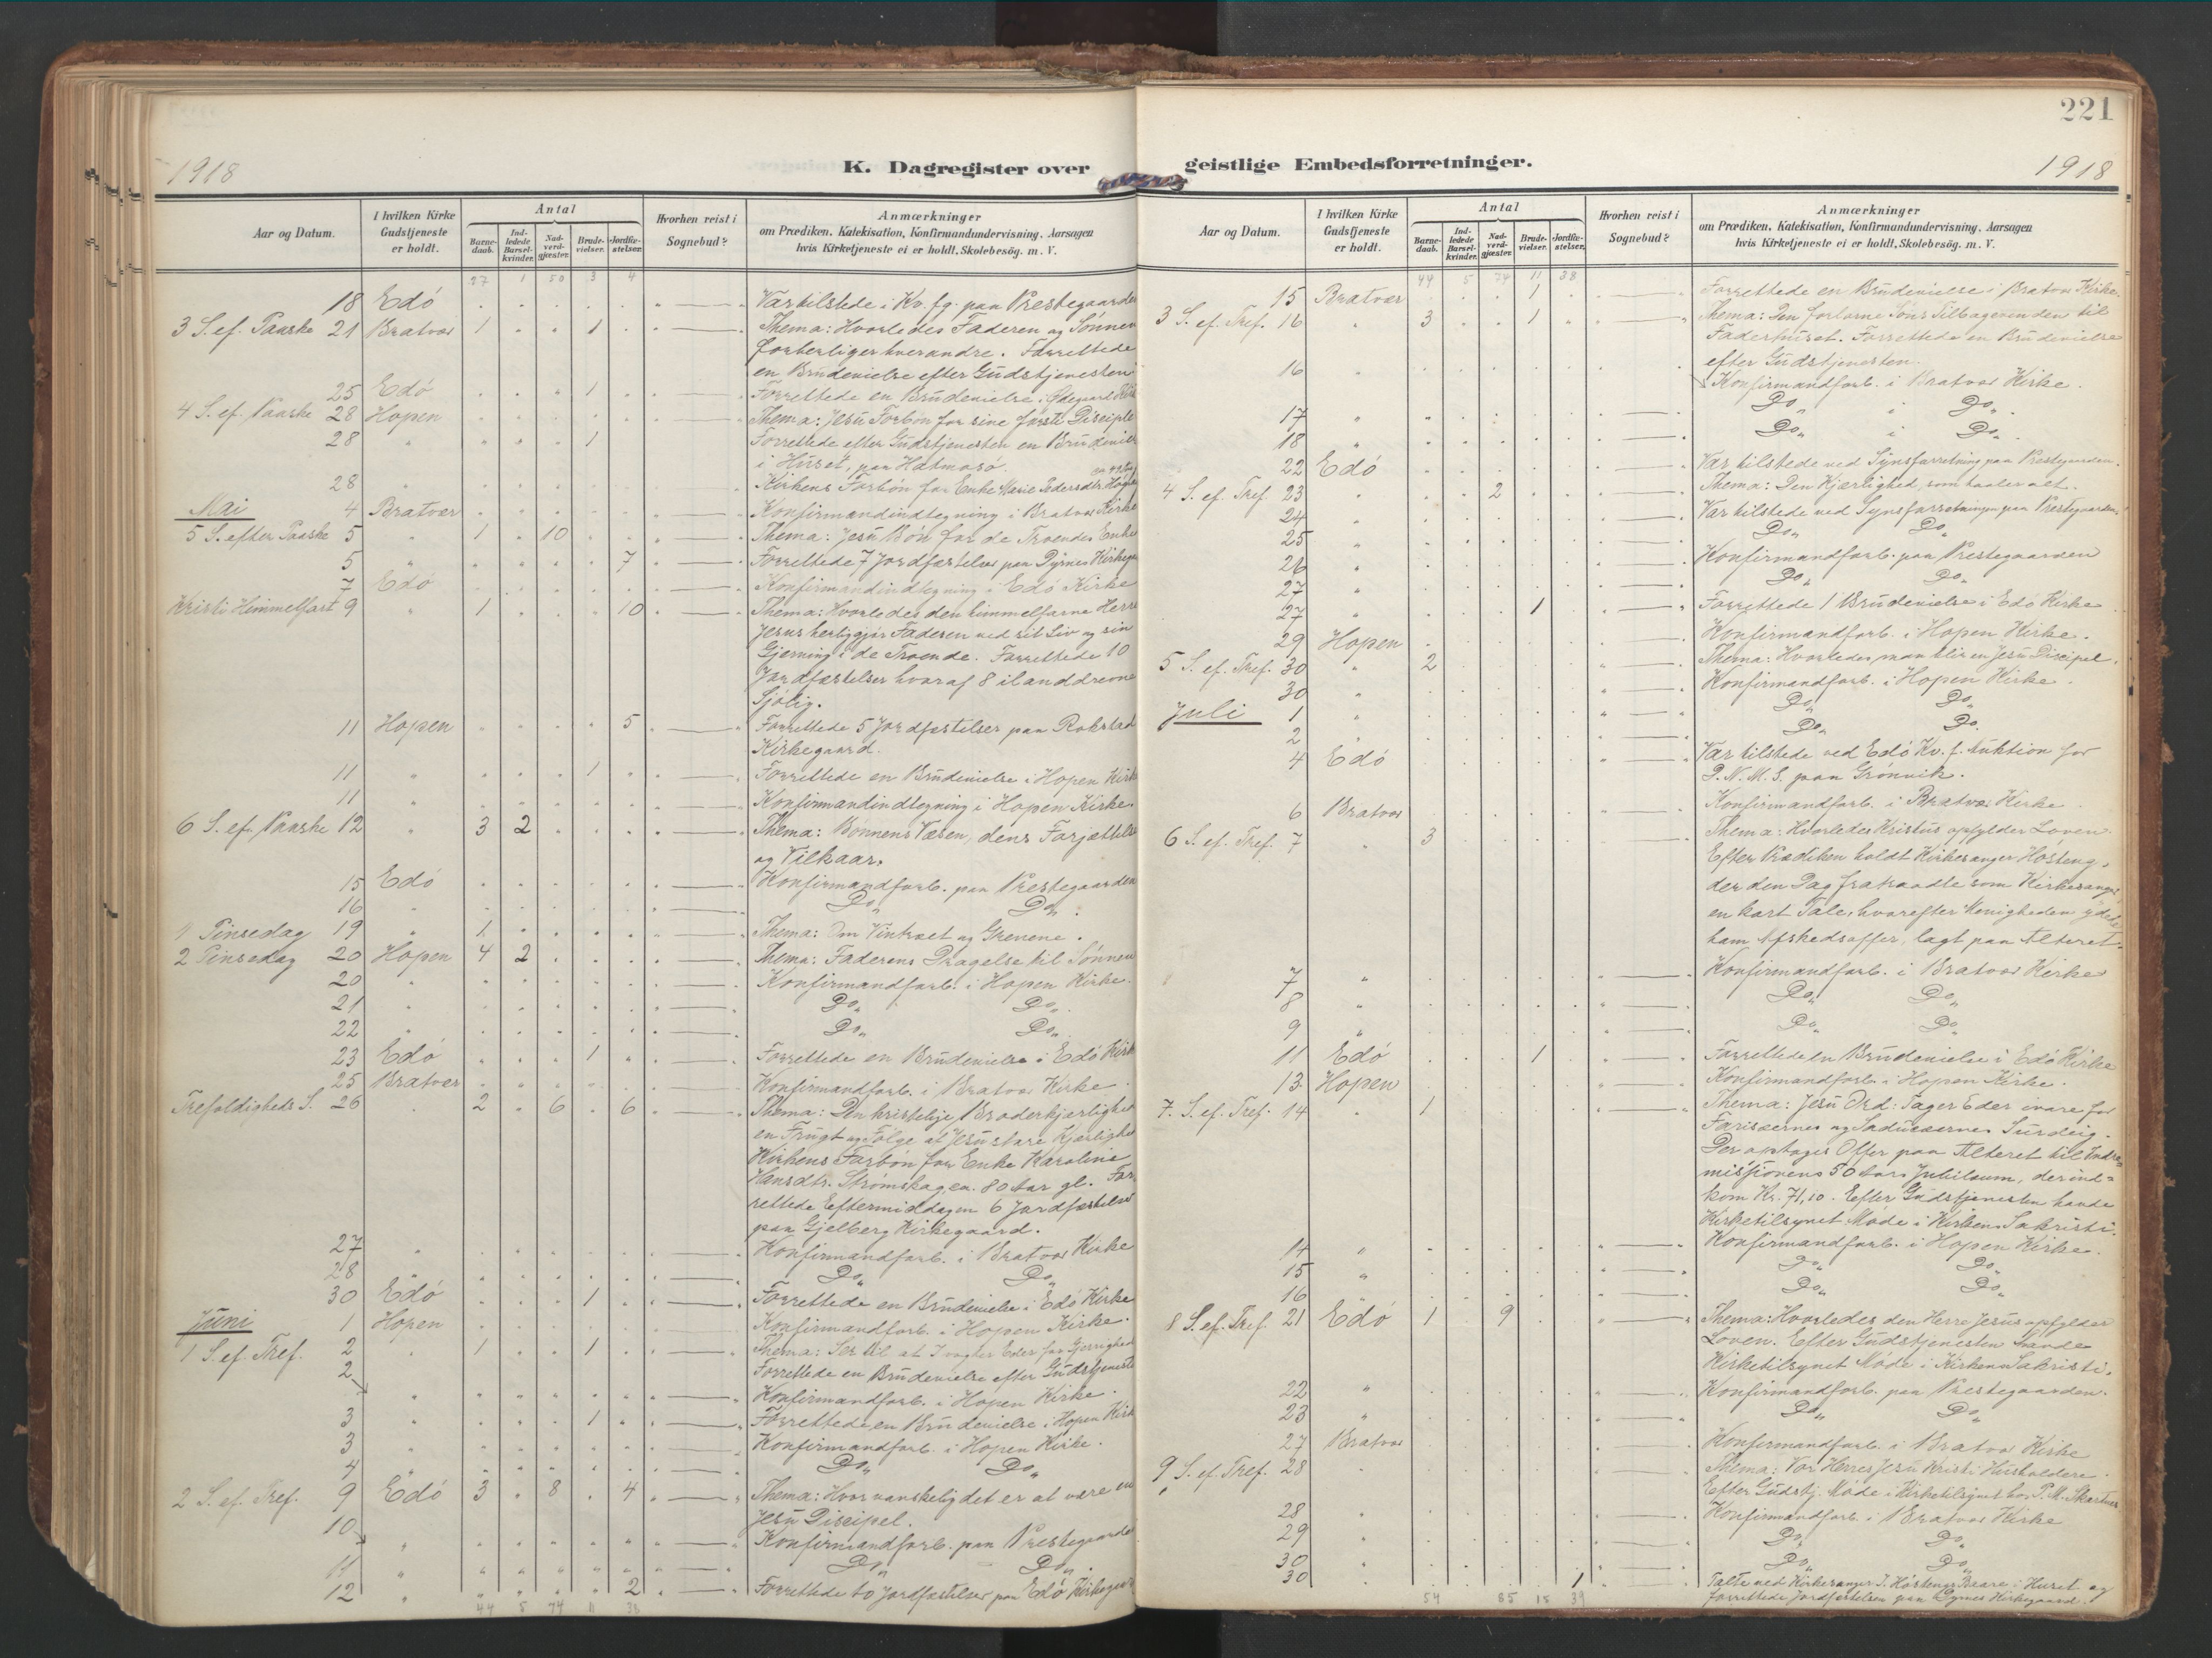 1918
K. Dagregister over
Aar og Datum.
I hvilken Kirke Gudstjeneste er holdt.
Antal
Barne-daab.
Ind-ledede Barsel-kvinder.
Nad-verd-gjæster.
Brude-vielser.
Jordfæ-stelser.
Hvorhen reist i Sognebud?
Anmærkninger
om Prædiken. Katekisation, Konfirmandundervisning. Aarsagen
hvis Kirketjeneste ei er holdt. Skolebesög. m. V.
27 1 50 3 4
18 Edö Var tilstede i Kv. fg. paa Prestegaarden
3 S. ef. Paaske 21 Bratvær 1 1 Thema: Hvorledes Faderen og Sønnen
forherliger hverandre. Forrettede
en Brudevielse efter Gudstjenesten
25 Edö 1 Forrettede en Brudevielse i Ødegaard Kirke
4 S. ef. Paaske 28 Hopen Thema: Jesu Forbön for sine förste Disciple
28 " 1 Forrettede efter Gudstjenesten en Brudeviel
i Huset, paa Hatmosö.
28 " Kirkens Forbön for Enke Marie Pedersdtr.
Mai 4 Bratvær Konfirmandindtegning i Bratvær Kirke
5 S. efter Paaske 5 " 1 10 Thema: Jesu Bön for de Troendes Enhe
5 " 7 Forrettede 7 Jordfæstelser paa Dyrnes Kirkega
7 Edö Konfirmandindtegning i Edö Kirke
Kristi Himmelfart 9 " 1 10 Thema: Hvorledes den himmelfarne Herre
Jesus herliggjør Faderen ved sit Liv og sin
Gjerning i de Troende. Forrettede 10
Jordfæstelser hvoraf 8 ilanddrevne
Sjölig.
11 Hopen 5 Forrettede 5 Jordfæstelser paa Rokstad
Kirkegaard.
11 " 1 Forrettede en Brudevielse i Hopen Kirk
11 " Konfirmandindtegning i Hopen Kirke.
6 S. ef. Paaske 12 " 3 2 Thema: Bönnens Væsen, dens Forjættelse
og Vilkaar.
15 Edö Konfirmandforb. paa Prestegaarden
16 " Do Do
1 Pinsedag 19 " 1 Thema: Om Vintræet og Grenene.
2 Pinsedag 20 Hopen 4 2 Thema: Faderens Dragelse til Sønnen
20 " Konfirmandforb. i Hopen Kirke.
21 " Do Do
22 " Do Do
23 Edö 1 Forrettede en Brudevielse i Edö Kirk
25 Bratvær Konfirmandforb. i Bratvær Kirke
Trefoldigheds S. 26 " 2 6 6 Thema: Den kristelige Broderkjærlighet
en Frugt og Fölge af Jesu store Kjærlighet
Kirkens Forbön for Enke Karoline
Hansdtr. Strömskag, ca. 80 Aar gl. For
rettede Eftermiddagen 6 Jordfæstelser
paa Gjelberg Kirkegaard.
27 " Konfirmandforb. i Bratvær Kirke
28 " Do Do
30 Edö 1 Forrettede en Brudevielse i Edö Kirke
Juni 1 Hopen Konfirmandforb. i Hopen Kirke.
1 S. ef. Tref. 2 " 1 1 Thema: Ser til at I vogter Eder for Gjerrighed
Forrettede en Brudevielse efter Gudstjeneste
2 " Konfirmandforb. i Hopen Kirke.
3 " 1 Forrettede en Brudevielse i Hopen Kirk
3 " Konfirmandforb. i Hopen Kirke.
4 " Do Do
2 S. ef. Tref. 9 Edö 3 8 4 Thema: Hvor vanskelig det er at være en
Jesu Discipel.
10 " Konfirmandforb. paa Prestegaarde
11 " Do Do
12 " 2 Forrettede to Jordfæstelser paa Edö Kirkegaar
44 5 74 11 38
221
geistlige Embedsforretninger.
1918
Aar og Datum.
I hvilken Kirke Gudstjeneste er holdt.
Antal
Barne-daab.
Ind-ledede Barsel-kvinder.
Nad-verd-gjæster.
Brude-vielser.
Jordfæ-stelser.
Hvorhen reist i Sognebud?
Anmærkninger
om Prædiken. Katekisation, Konfirmandundervisning. Aarsagen
hvis Kirketjeneste ei er holdt. Skolebesög. m. V.
44 5 74 11 38
15 Bratvær 1 Forrettede en Brudevielse i Bratvær Kirke.
3 S. ef. Tref. 16 " 3 1 Thema: Den fortorne Söns Tilbagevenden til
Faderhuset. Forrettede en Brudevielse
efter Gudstjenesten.
16 " Konfirmandforb. i Bratvær Kirke.
17 " Do i Do
18 " Do i Do
22 Edö Var tilstede ved Synsforretning paa Prestegaarden.
4 S. ef. Tref. 23 " 2 Thema: Den Kjærlighed, som taaler alt.
24 " Var tilstede ved Synsforretningen paa Prestegaarden.
25 " Do Do
26 " Konfirmandforb. paa Prestegaarden
27 " Do Do
27 " 1 Forrettede 1 Brudevielse i Edö Kirke
29 Hopen Konfirmandforb. i Hopen Kirke.
5 S. ef. Tref. 30 " 2 Thema: Hvorledes man blir en Jesu Discipel.
30 " Konfirmandforb. i Hopen Kirke.
Juli 1 " Do Do
2 " Do Do
4 Edö Var tilstede ved Edö Kv. f. Auktion for
D. N. M. S. paa Grönvik.
6 Bratvær Konfirmandforb. i Bratvær Kirke
6 S. ef. Tref. 7 " 3 Thema: Hvorledes Kristus opfylder Loven.
Efter Prædiken holdt Kirkesanger Hösteng,
der den Dag fratraadte som Kirkesanger,
en kort Tale, hvorefter Menigheden ydet
ham Afskedsoffer, lagt paa Alteret.
7 " Konfirmandforb. i Bratvær Kirke
8 " Do Do
9 " Do Do
11 Edö 1 Forrettede en Brudevielse i Edö Kirke
13 Hopen Konfirmandforb. i Hopen Kirke.
7. S. ef. Tref. 14 " 1 Thema: Jesu Ord: Tager Eder ivare for
Farisæernes og Saducæernes Surdeig.
Der optoges Offer paa Alteret til Indre-
missionens 50 Aars Jubilæum, der ind-
kom Kr. 71,10. Efter Gudstjenesten havde
Kirketilsynet Möde i Kirkens Sakristi.
14 " Konfirmandforb. i Hopen Kirke.
15 " Do Do
16 " Do Do
8 S. ef. Tref. 21 Edö 1 9 Thema: Hvorledes den Herre Jesus opfylder
Loven. Efter Gudstjenesten havde
Kirketilsynet Möde i Kirkens Sakristi.
22 " Konfirmandforb. paa Prestegaarden.
23 " Do Do
27 Bratvær Konfirmandforb. i Bratvær Kirke
9 S. ef. Tref. 28 " Thema: Vor Herres Jesu Kristi Husholdere.
Efter Gudstj. Möde i Kirketilsynet hos P. M. Skarsnes
28 " Konfirmandforb. i Bratvær Kirke
29 " Do Do
30 " Do Do
30 " 1 Talte ved Kirkesanger I. Höstengs Baare i Huset og
forrettede Jordfæstelsen paa Dyrnes Kirkegaard.
54 85 15 39